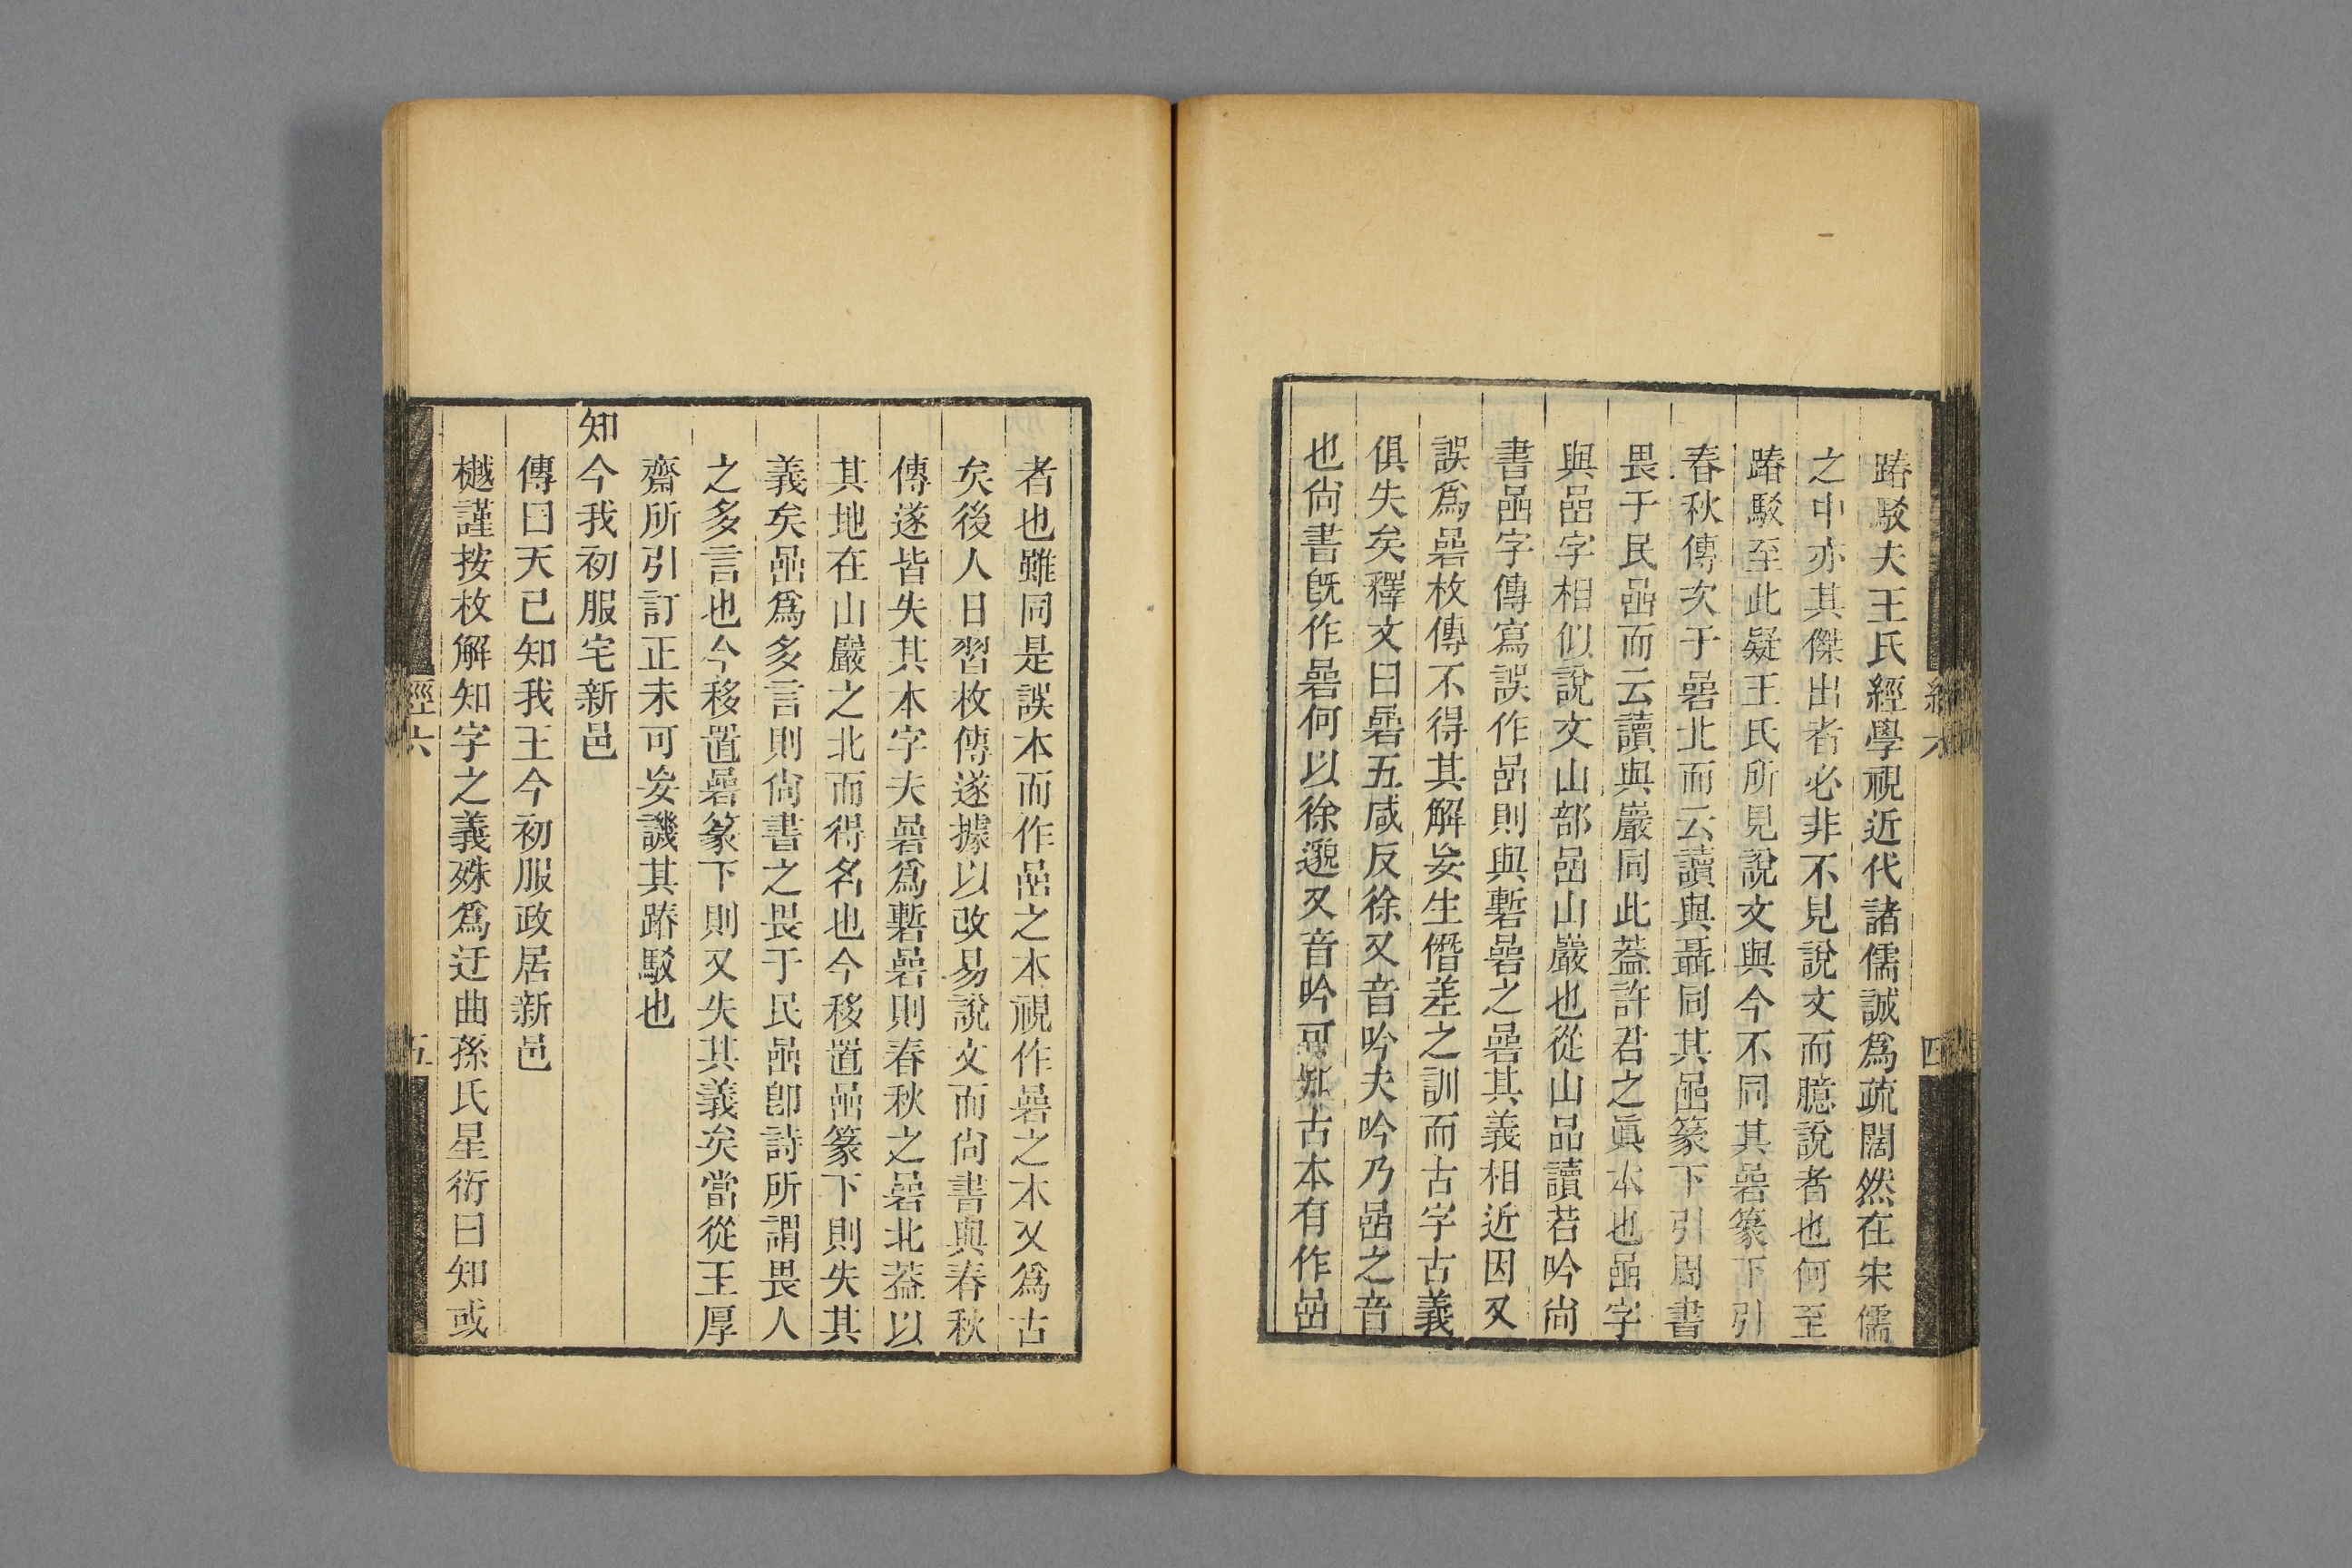 踳駁夫王氏經學視近代諸儒誠爲疏闊然在宋儒
之中亦其傑出者必非不見說文而臆說者也何至
踳駁至此疑王氏所見說文與今不同其碞篆下引
春秋傳次于碞北而云讀與聶同其嵒篆下引周書
畏于民嵒而云讀與巖同此葢許君之眞本也嵒字
與嵒字相似說文山部嵒山巖也從山品讀若吟尙
書嵒字傳寫誤作嵒則與磛碞之碞其義相近因又
誤爲碞枚傳不得其解妄生僭差之訓而古字古義
俱失矣釋文曰碞五咸反徐又音吟夫吟乃嵒之音
也尙書旣作碞何以徐邈又音吟可知古本有作嵒
者也雖同是誤本而作嵒之本視作碞之本又爲古
矣後人日習枚傳遂據以改易說文而尙書與春秋
傳遂皆失其本字夫碞爲磛碞則春秋之碞北葢以
其地在山巖之北而得名也今移置嵒篆下則失其
義矣嵒爲多言則尙書之畏于民嵒卽詩所謂畏人
之多言也今移置碞篆下則又失其義矣當從王厚
齋所引訂正未可妄譏其踳駁也
知今我初服宅新邑
傳曰天已知我王今初服政居新邑
樾謹按枚解知字之義殊爲迂曲孫氏星衍曰知或
經六
四
經六
五